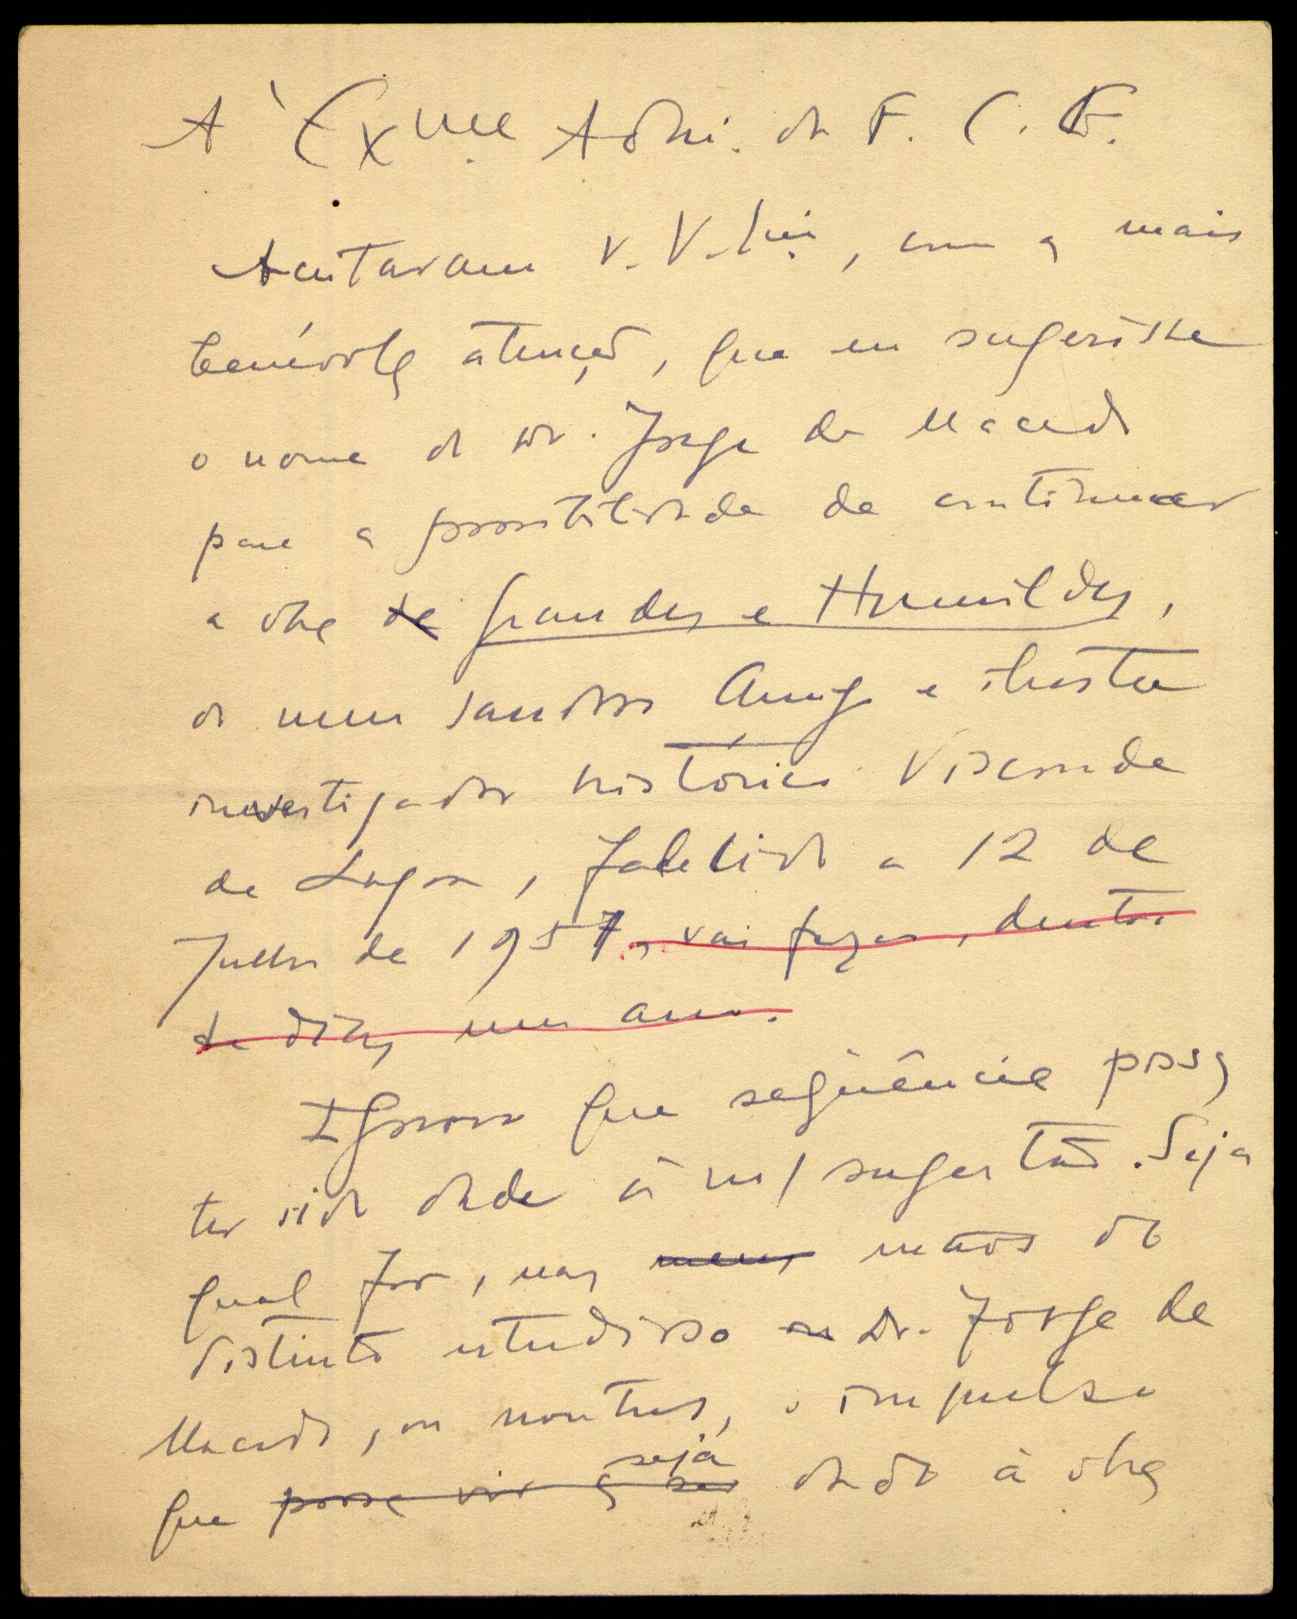 À Exma Adm. da F. C. G.
Aceitaram V. V. Exias, com a mais
benévola atenção, que eu sugerisse
o nome do Dr. Jorge de Macedo
para a possibilidade de continuar
a obra de Grandes e Humildes,
do meu saudoso Amigo e ilustre
investigador histórico Visconde
de Lagoa, falecido a 12 de
Julho de 1957, vai fazer, dentro
de dias, um ano.
Ignoro que seqüência possa
ter sido dada à m/ sugestão. Seja
qual for, nas meus mãos do
distinto estudioso Dr. Jorge de
Macedo, ou noutras, o impulso
seja
que possa vir a ser dado à obra